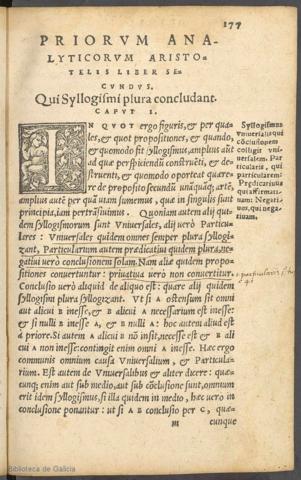 177
PRIORVM ANA-
LYTICORVM ARISTO-
TELIS LIBER SE-
CVNDVS.
Qui Syllogismi plura concludant.
CAPVT I.
IN QVOT ergo figuris, & per qua-
les, & quot propositiones, & quando,
& quemodo fit Syllogismus, amplius aūt
ad quæ perspiciēdū construēti, & de-
struenti, & quomodo oporteat quære-
re de proposito secundū unāquāq; artē,
amplius autē per quā uiam sumemus, quæ in singulis sunt
principia, iam pertrāsiuimus. Quoniam autem alij qui-
dem syllogismorum sunt Vniuersales, alij uerò Particu-
lares: Vniuersales quidem omnes semper plura Syllogi-
zant, Particularium autem prædicatiui quidem plura, ne-
gatiui uerò conclusionem solam. Nam aliæ quidem propo-
sitiones conuertuntur: priuatiua uerò non conuertitur.
Conclusio uerò aliquid de aliquo est: quare alij quidem
syllogismi plura syllogizant. Vt si A ostensum sit omni
aut alicui B inesse, & B alicui A necessarium est inesse:
& si nulli B inesse A, & B nulli A: hoc autem aliud est
à priore. Si autem A alicui B nō insit, necesse est & B ali
cui A non inesse: contingit enim omni A inesse. Hæc ergo
communis omnium causa Vniuersalium, & Particula-
rium. Est autem de Vniuersalibus & aliter dicere: quæ-
cunq; enim aut sub medio, aut sub cōclusione sunt, omnium
erit idem syllogismus, si illa quidem in medio, hæc uero in
conclusione ponantur: ut si A B conclusio per C, quæ-
M cunque
Syllogismus
Vniuersalis qui
cōclusionem
colligit vni-
uersalem. Par
ticularis, qui
particularem:
Prædicatiuus
qui affirmati-
uam: Negati-
uus, qui nega-
tiuam.
Biblioteca de Galicia